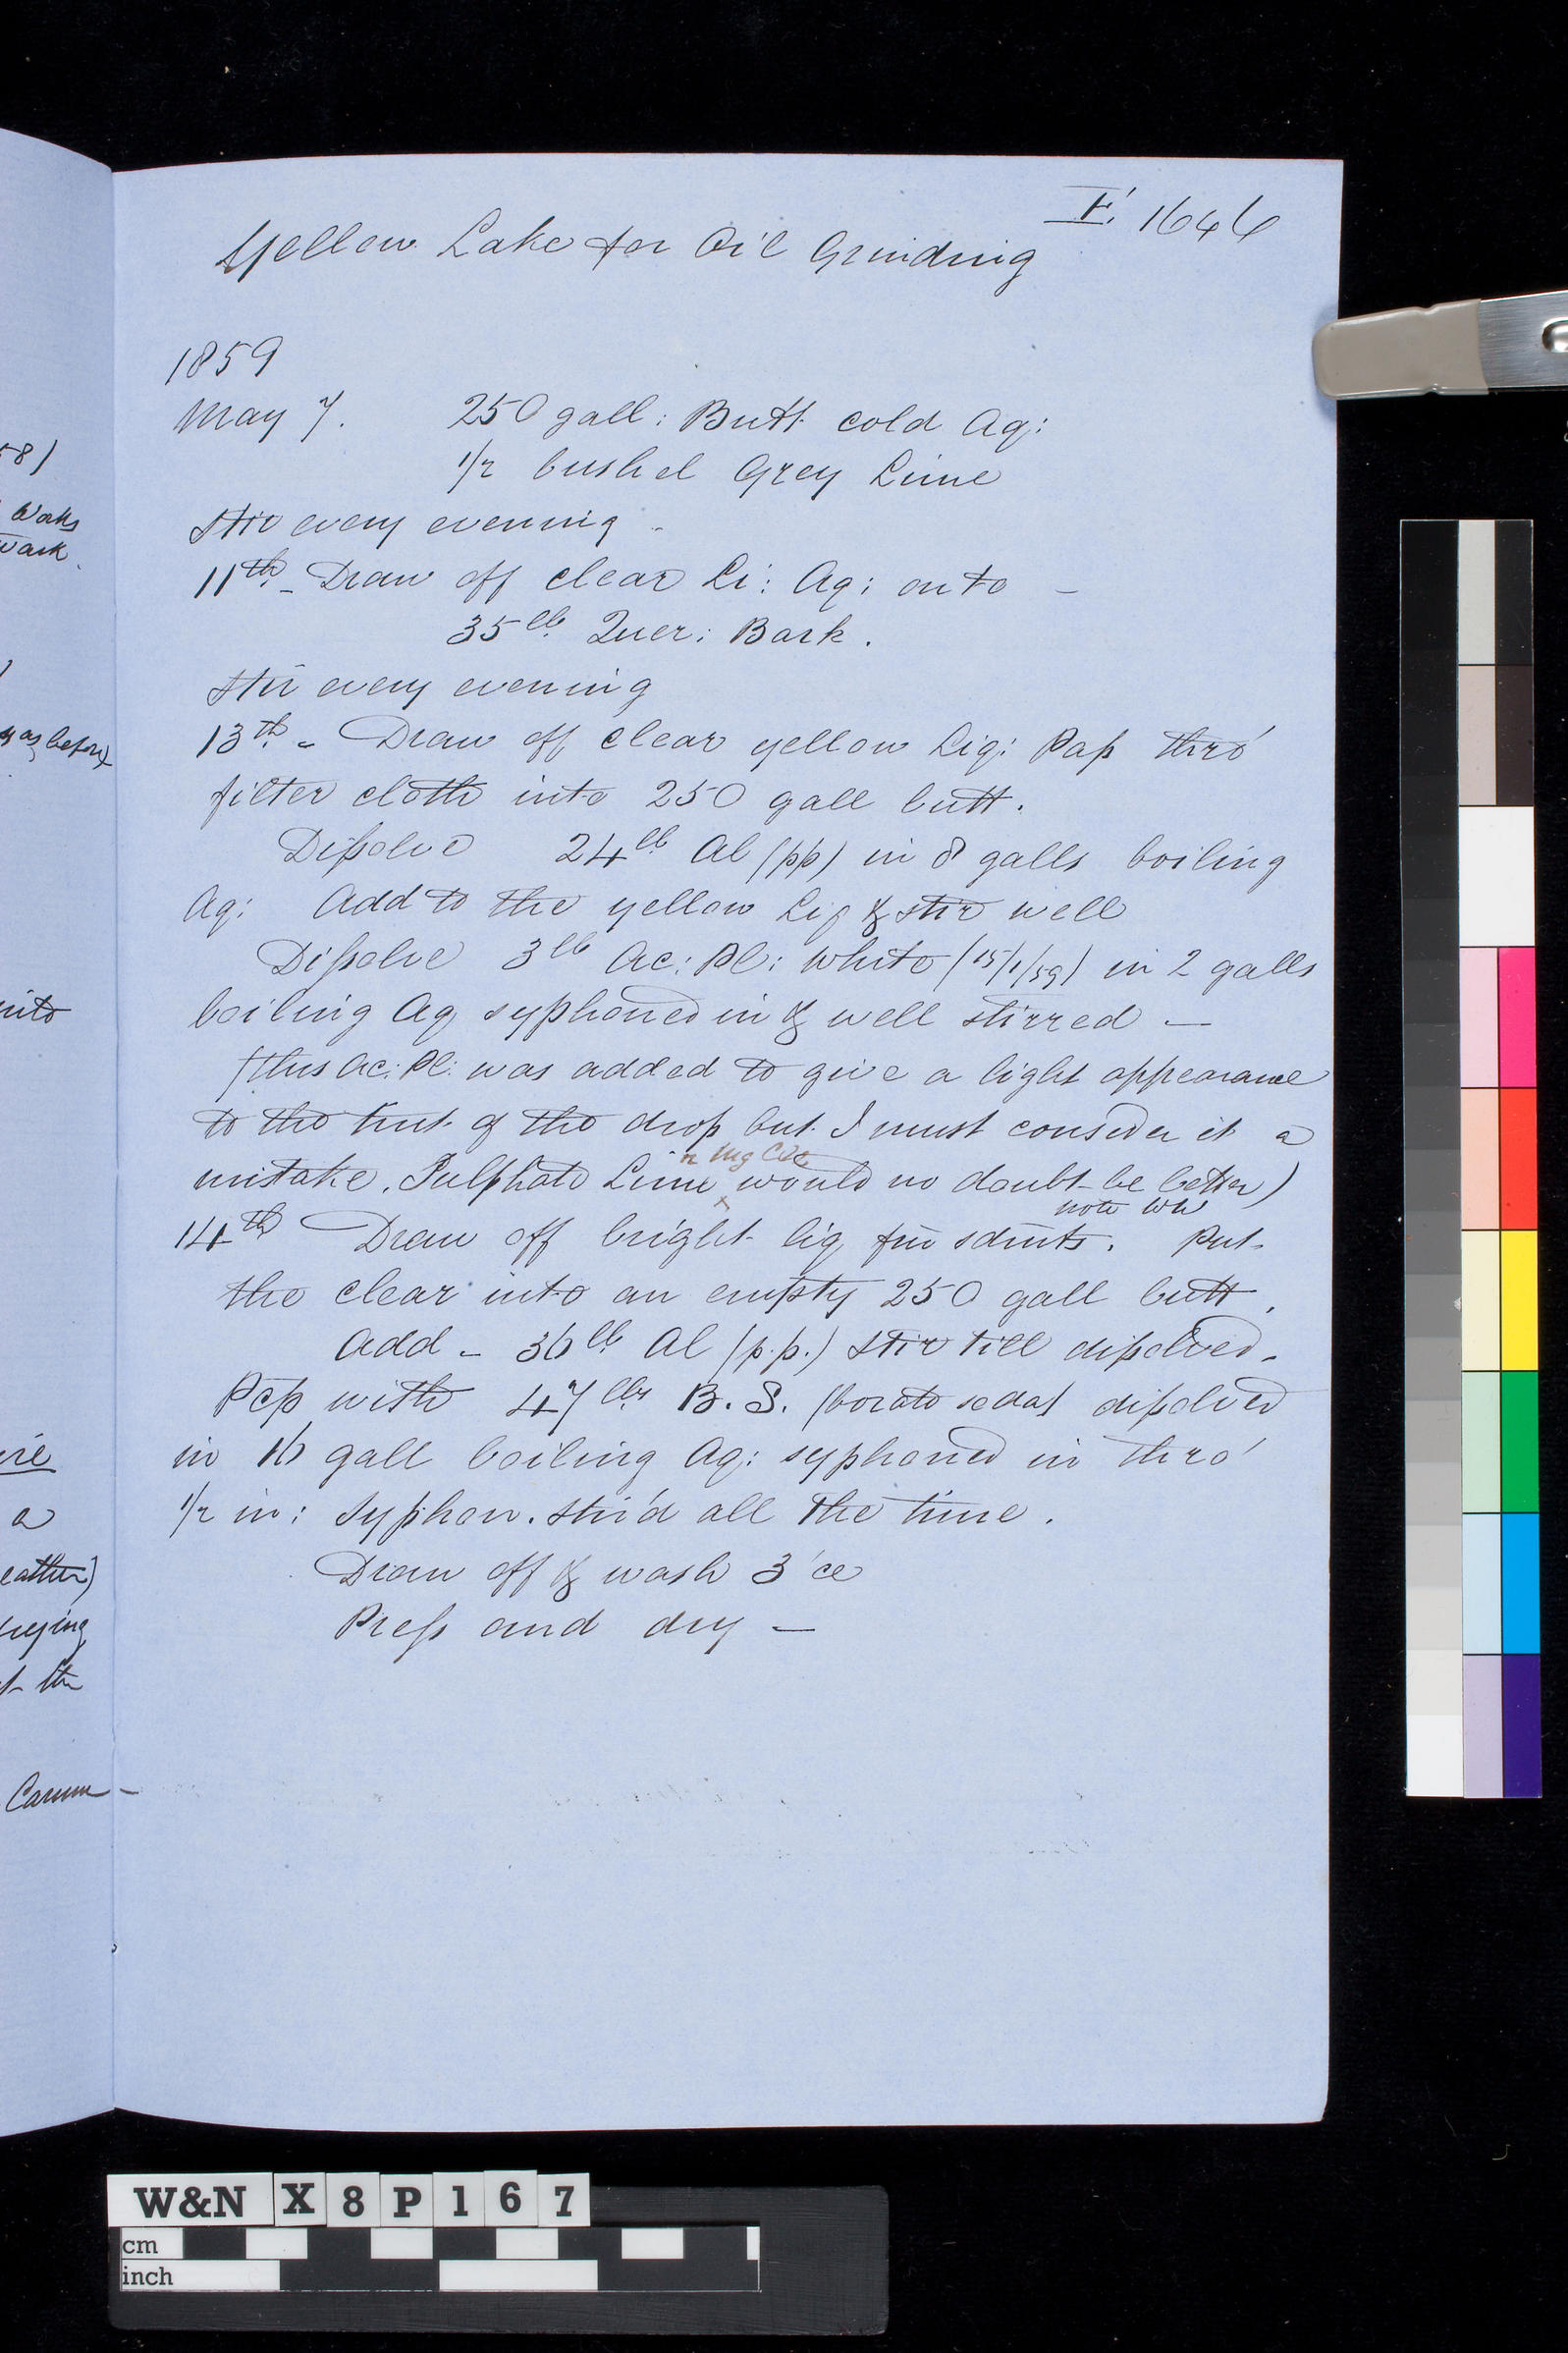 E. 1646
Yellow Lake for Oil Grinding
1859
May 7. 250 gall: Butt cold Aq:
1/2 bushel Grey Lime
stir every evening.
11th - Draw off clear Li: Aq: onto -
35 lb. Quer: Bark.
stir every evening
13th - Draw off clear yellow Liq: Pass thro'
filter cloth into 250 gall butt.
Dissolve 24 lb Al (pp) in 8 galls boiling
Aq: Add to the yellow Liq & stir well
Dissolve 3 lb Ac: Pl: white (15/1/59) in 2 galls
boiling Aq syphoned in & well stirred —
(this Ac: Pl: was added to give a light appearance
to the tint of the drop but I must consider it a
mistake. Sulphate Lime would no doubt be better)
14th Draw off bright liq Put
the clear into an empty 250 gall butt.
Add - 36 lb. Al (p.p.) stir till dissolved.
Pcp with 47 lbs B. S. (borate soda) dissolved
in 16 gall boiling Aq: syphoned in thro'
1/2 in: syphon. stir'd all the time.
Draw off & wash 3'ce
Press and dry —
58)
Works
as before
into
a
the
Carm -
W&N X 8 P 1 6 7
cm
inch